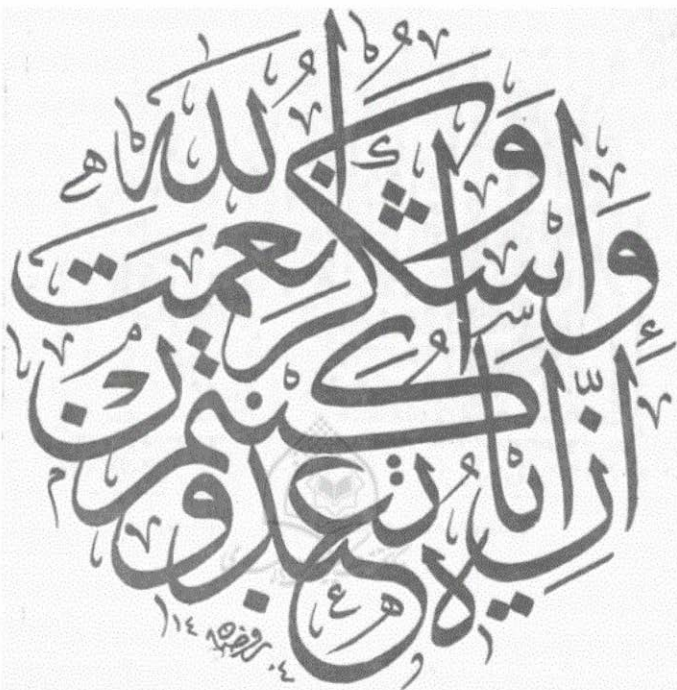 وَاشْكُرُوا نِعْمَتَ اللهِ إِنْ كُنْتُمْ إِيَّاهُ تَعْبُدُونَ